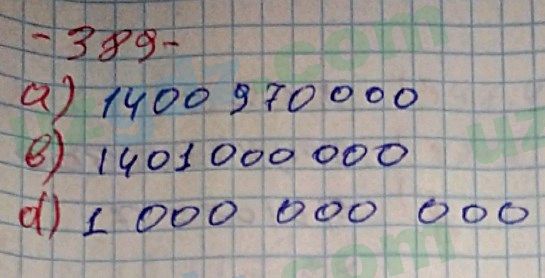 -389-
a) 1400 970000
b) 1401 000 000
d) 1 000 000 000